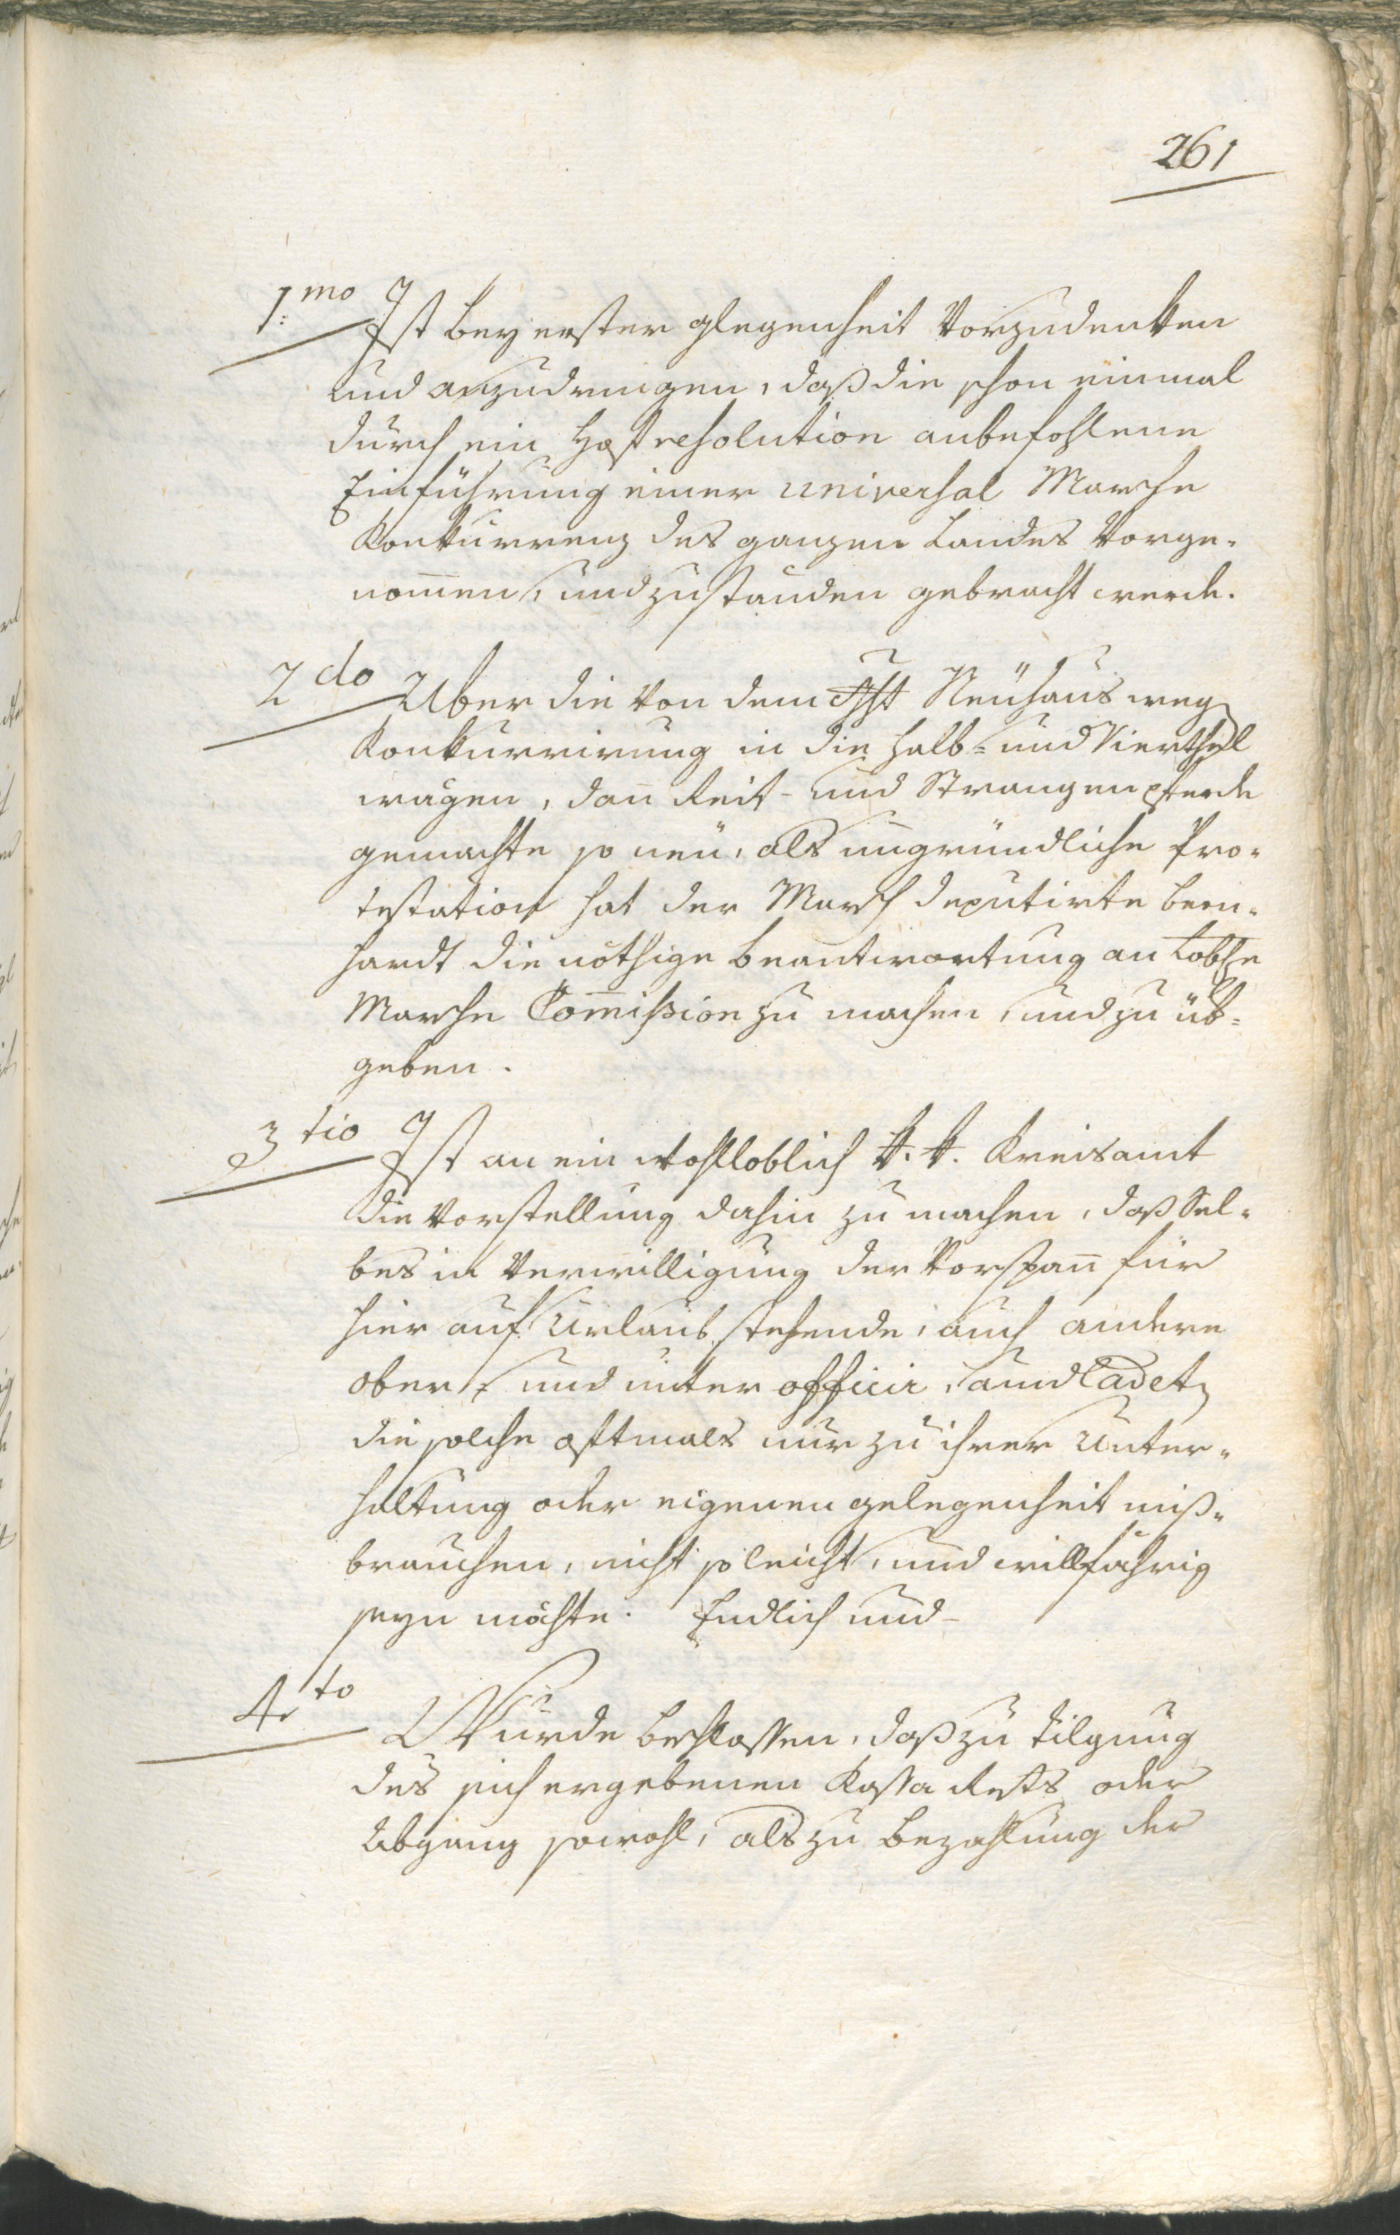 261
1:mo Ist bey erster glegenheit vorzudenken
und anzudringen, daß die schon einmal
durch ein Hofresolution anbefohlene
Einführung einer universal Marche
Konkurrenz des ganzen Landes vorge-
nom̄en, und zustanden gebracht werde.
2do Uber die von dem Ght Neuhaus weg
Konkurrirung in die halb- und Vierthel
wägen, dan̄ Reit- und Strangenpferde
gemachte so neu, als ungründliche Pro-
testation hat der March deputirte bern-
hardt die nöthige beantwortung an Lobhe
Marche Com̄ißion zu machen, und zu üb-
geben.
3tio Ist an ein wohlloblich k. k. Kreisamt
die Vorstellung dahin zu machen, daß Sel-
bes in Verwilligung der Vorspan̄ für
hier auf Urlaub stehende, auch andere
ober- und unter officir, und Cadet,
die solche oftmals nur zu ihrer Unter-
haltung oder eigenen gelegenheit miß-
brauchen, nicht so leicht, und willfährig
seyn möchte. Endlich und-
4to Wurde beschlossen, daß zu tilgung
des sich ergebenen Kassa Rests oder
Abgang sowohl, als zu bezahlung der